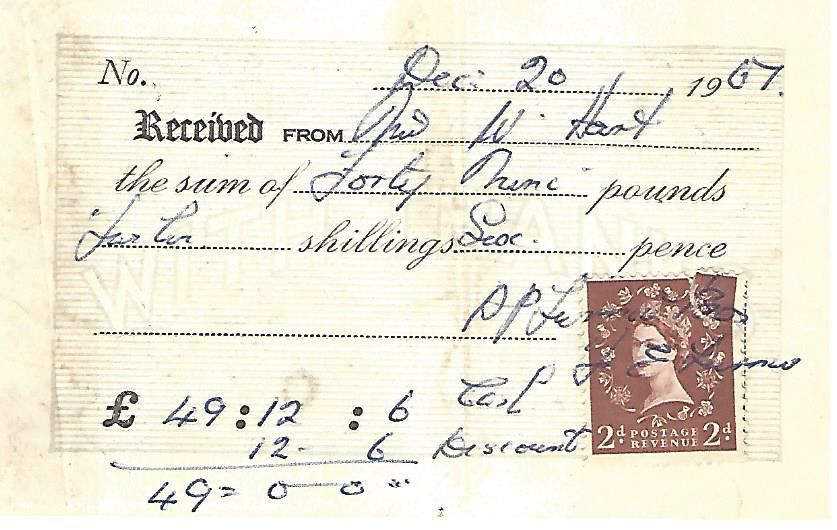 No. Dec. 20 1967.
Received FROM W. Hart
the sum of Forty Nine pounds
shillings Six. pence
WITH THANKS
PP
£ 49 : 12 : 6 Cash
12 - 6 Discount
49 = 0 — 0
2d. POSTAGE REVENUE 2d.